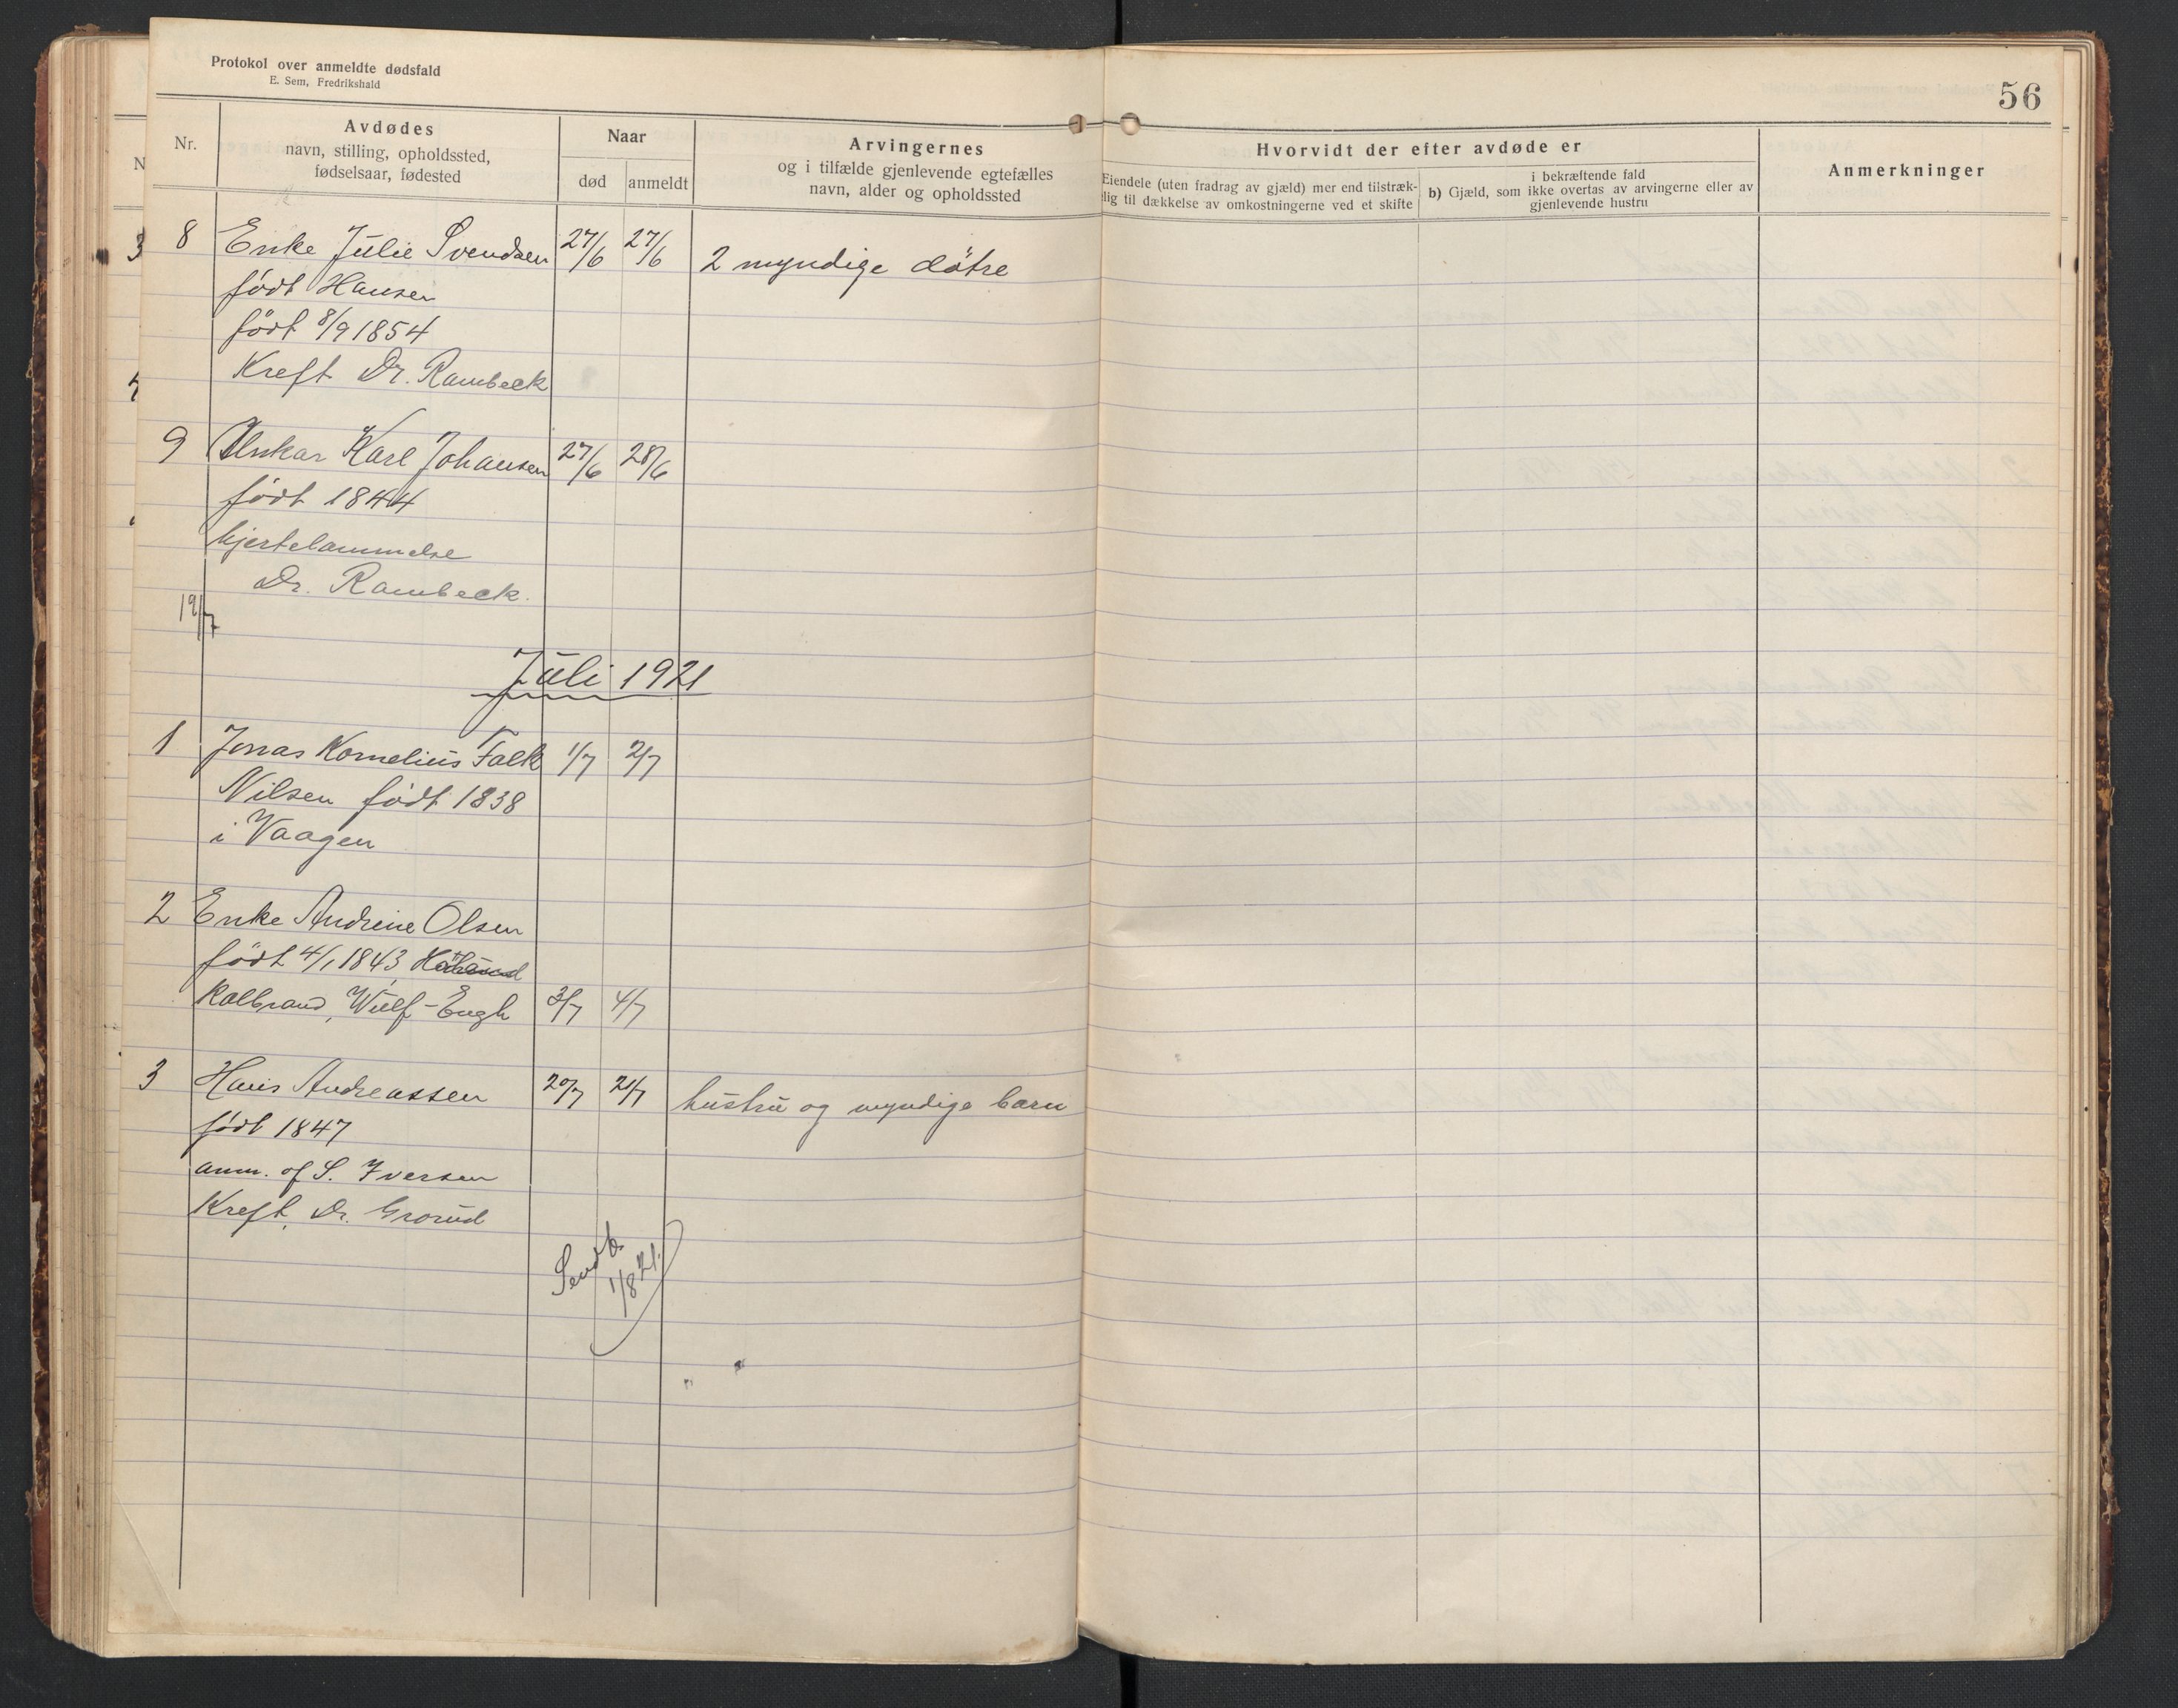 Protokol over anmeldte dødsfald
E. Sem, Fredrikshald
56
Nr.
Avdødes
navn, stilling, opholdssted,
fødselsaar, fødested
Naar
død
anmeldt
Arvingernes
og i tilfælde gjenlevende egtefælles
navn, alder og opholdssted
Hvorvidt der efter avdøde er
Eiendele (uten fradrag av gjæld) mer end tilstræk-
lig til dækkelse av omkostningerne ved et skifte
i bekræftende fald
b) Gjæld, som ikke overtas av arvingerne eller av
gjenlevende hustru
Anmerkninger
8 Enke Julie Svendsen 27/6 27/6 2 myndige døtre
født Hansen
født 8/9 1854
Kreft Dr. Rambeck
9 Unkar Karl Johansen 27/6 28/6
født 1844
hjertelammelse
Dr. Rambeck.
19/7
Juli 1921
1 Jonas Kornelius Falk 1/7 2/7
Nilsen født 1838
i Vaagen
2 Enke Andrine Olsen
født 4/1 1843
Kolbrand, Wulf-Engh 3/7 4/7
3 Hans Andreassen 20/7 21/7 hustru og myndige barn
født 1847
anm. af S. Iversen
Kreft, Dr. Grorud
Sendt
1/8 21.